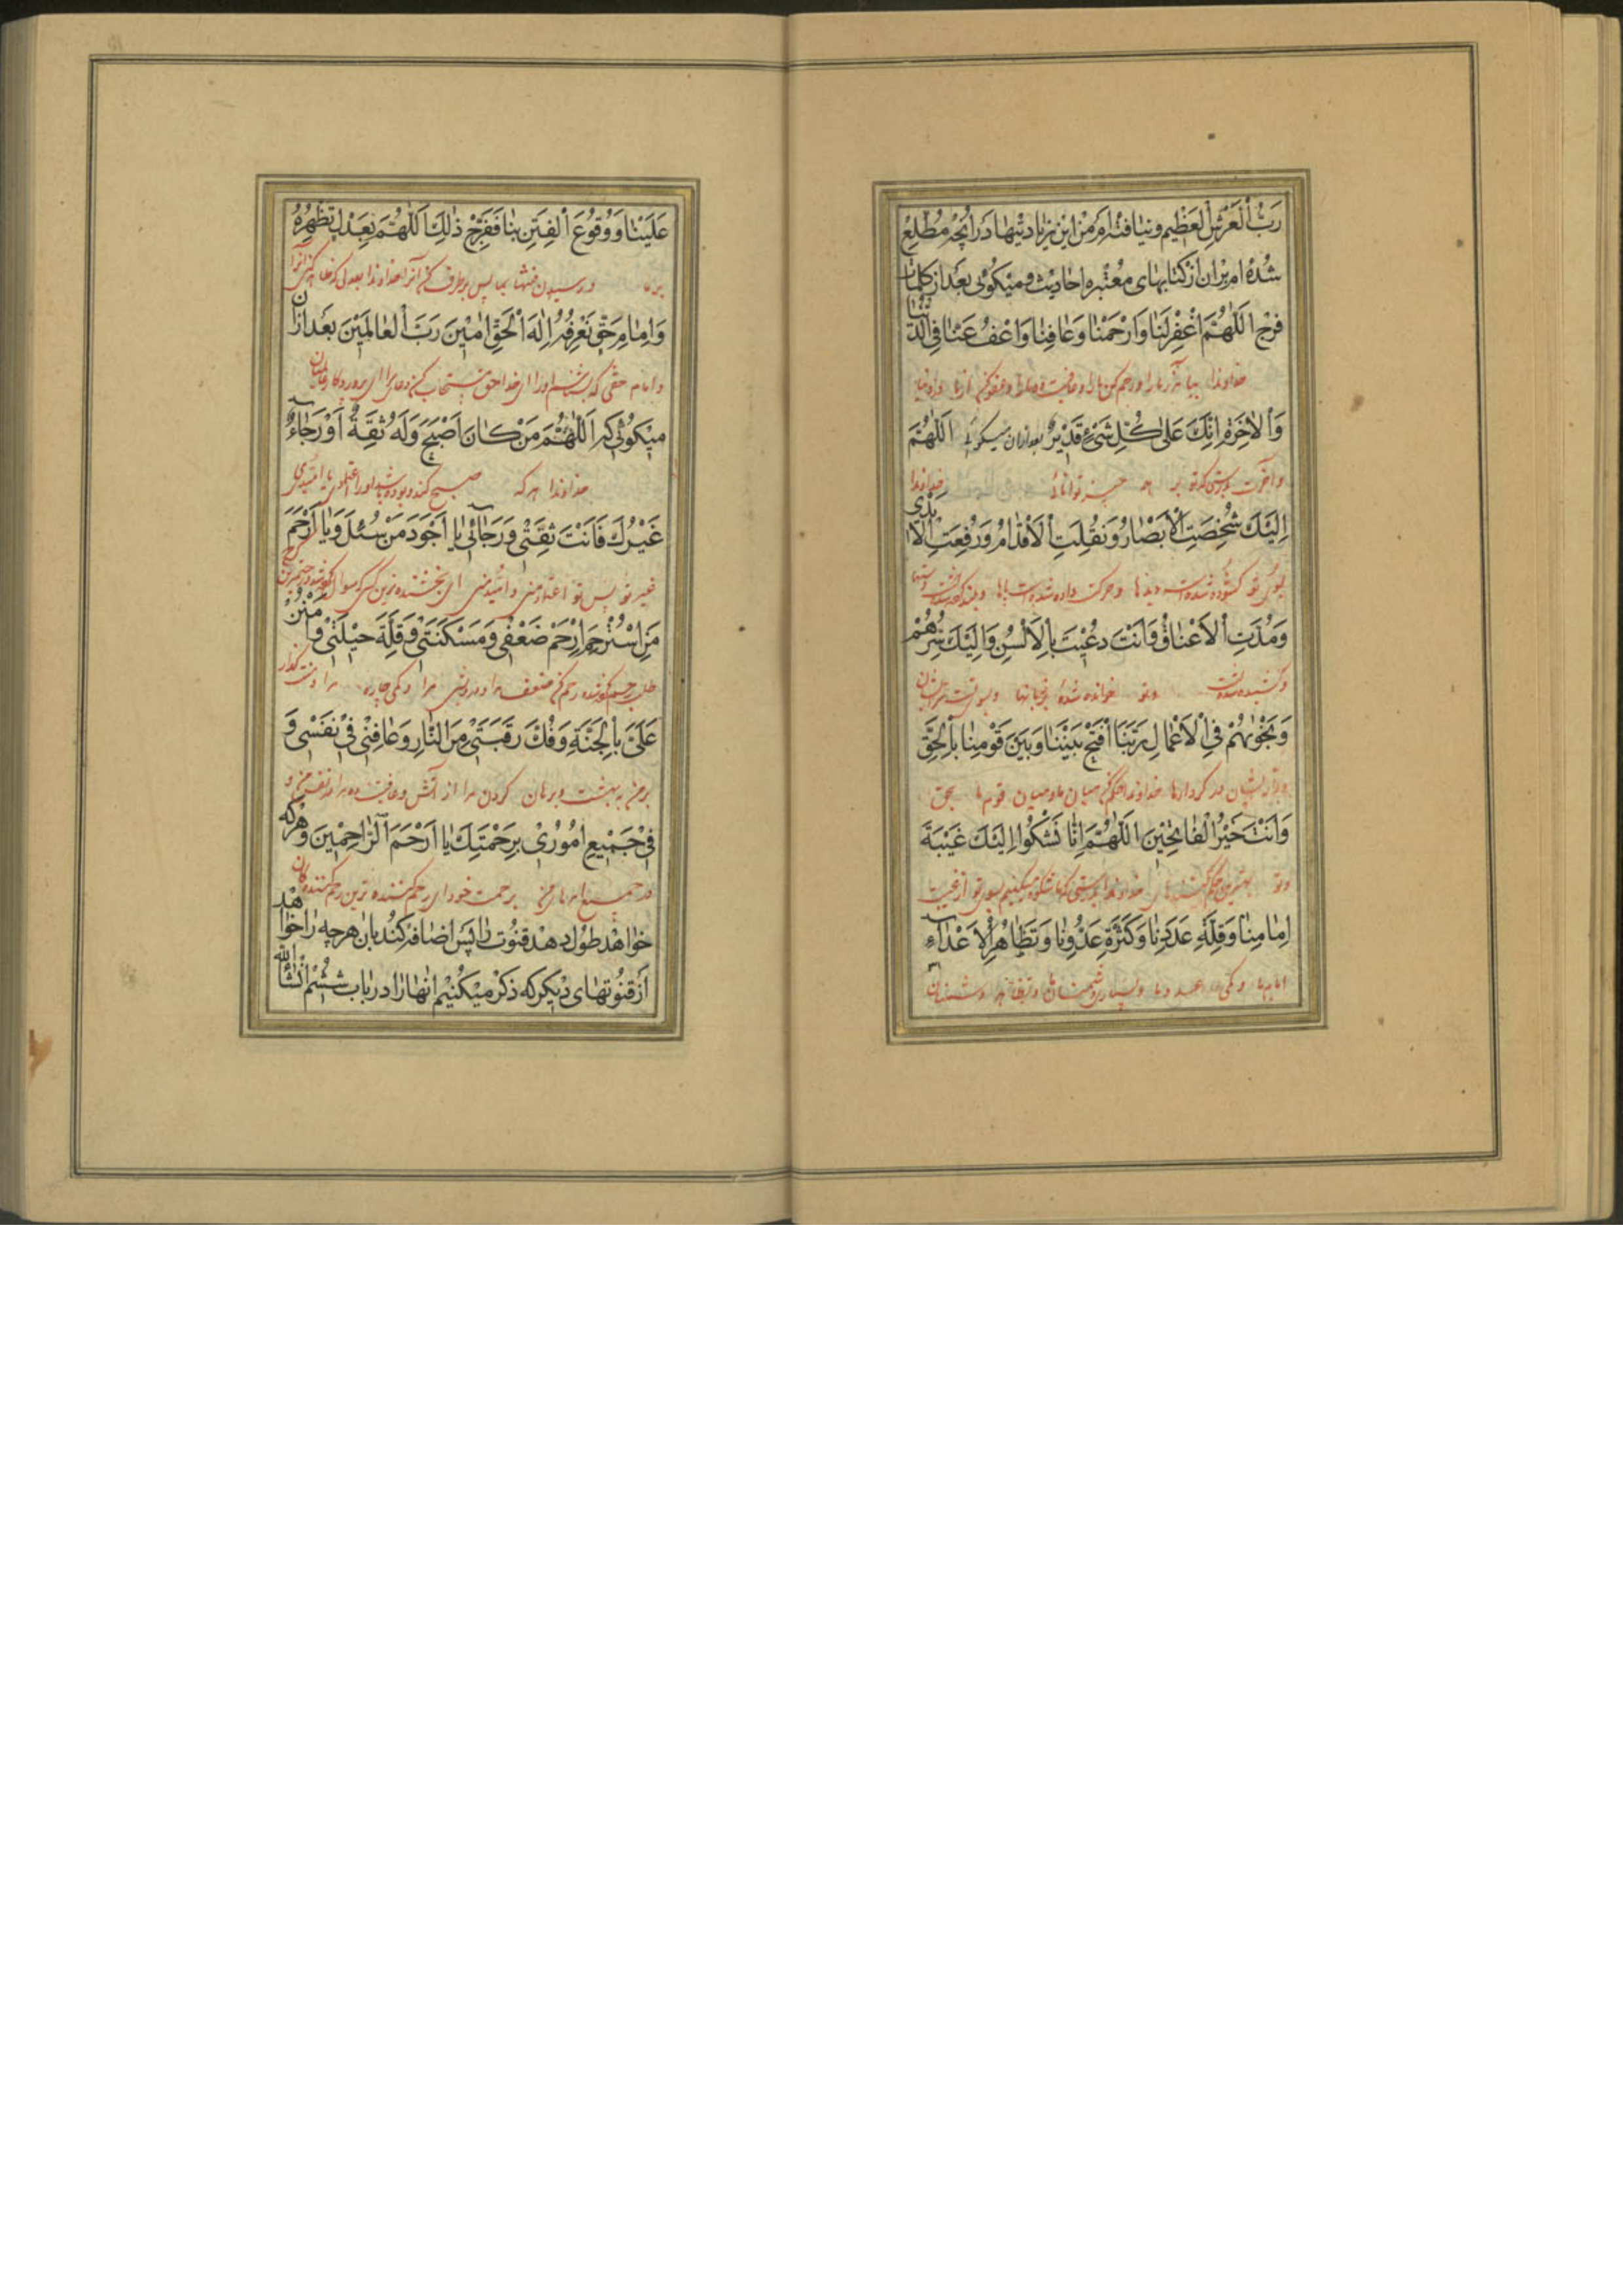 رَبُّ الْعَرْشِ الْعَظِیمِ و نیافته‌ام من این زیادتیها در آنچه مطّلع
شده‌ام بر آن از کتابهای معتبره احادیث و میگوئی بعد از کلمات
فرج اَللّٰهُمَّ اغْفِرْ لَنٰا وَارْحَمْنٰا وَعٰافِنٰا وَاعْفُ عَنّٰا فِی الدُّنْیٰا
خداوندا بیامرز ما را و رحم کن ما را و عافیت ده ما را و عفو کن از ما در دنیا
وَالْاٰخِرَةِ اِنَّكَ عَلیٰ كُلِّ شَیْءٍ قَدِیْرٌ بعد از آن میگوئی اَللّٰهُمَّ
و آخرت بدرستی که تو بر هر چیز توانائی خداوندا
اِلَیْكَ شُخِصَتِ الْاَبْصٰارُ وَنُقِلَتِ الْاَقْدٰامُ وَرُفِعَتِ الْاَیْدِی
بسوی تو گشوده شده است دیدها و حرکت داده شده است پاها و بلند کرده شده است دستها
وَمُدَّتِ الْاَعْنٰاقُ وَاَنْتَ دُعِیْتَ بِالْاَلْسُنِ وَاِلَیْكَ سِرُّهُمْ
و کشیده شده است و تو خوانده شدهٔ بزبانها و بسوی تست
وَنَجْوٰیهُمْ فِی الْاَعْمٰالِ رَبَّنَا افْتَحْ بَیْنَنٰا وَبَیْنَ قَوْمِنٰا بِالْحَقِّ
در کردارها خداوندا حکم کن میان ما و میان قوم ما بحق
وَاَنْتَ خَیْرُ الْفٰاتِحِیْنَ اَللّٰهُمَّ اِنّٰا نَشْكُوا اِلَیْكَ غَیْبَةَ
و تو بهترین حکم کنندهای خداوندا بدرستی که ما شکوه میکنیم بسوی تو از غیبت
اِمٰامِنٰا وَقِلَّةَ عَدَدِنٰا وَكَثْرَةَ عَدُوِّنٰا وَتَظٰاهُرَ الْاَعْدٰاءِ
امام ما و کمی عدد ما و بسیاری دشمنان ما و دشمنان
عَلَیْنٰا وَوُقُوعَ الْفِتَنِ بِنٰا فَفَرِّجْ ذٰلِكَ اَللّٰهُمَّ بِعَدْلٍ تُظْهِرُهُ
بر ما و رسیدن فتنها بما پس برطرف کن آنرا خداوندا بعدلی که ظاهر کنی آنرا
وَاِمٰامِ حَقٍّ نَعْرِفُهُ اِلٰهَ الْحَقِّ اٰمِیْنَ رَبَّ الْعٰالَمِیْنَ بعد از آن
و امام حقی که بشناسیم او را ای خدای حق مستجاب کن دعای ما را ای پروردگار عالمیان
میگوئی که اَللّٰهُمَّ مَنْ كٰانَ اَصْبَحَ وَلَهُ ثِقَةٌ اَوْ رَجٰاءٌ
خداوندا هر که صبح کند و بوده باشد او را اعتمادی یا امیدی
غَیْرُكَ فَاَنْتَ ثِقَتِی وَرَجٰائِی یٰا اَجْوَدَ مَنْ سُئِلَ وَیٰا اَرْحَمَ
غیر تو پس تو اعتماد منی و امید منی ای بخشنده‌ترین کسی که سوال کرده شود
مَنِ اسْتُرْحِمَ اِرْحَمْ ضَعْفِی وَمَسْكَنَتِی وَقِلَّةَ حِیْلَتِی وَامْنُنْ
طلب رحم کرده شده رحم کن ضعف مرا و درویشی مرا و کمی چاره مرا و منت گذار
عَلَیَّ بِالْجَنَّةِ وَفُكَّ رَقَبَتِی مِنَ النّٰارِ وَعٰافِنِی فِی نَفْسِی وَ
بر من به بهشت و برهان گردن مرا از آتش و عافیت ده مرا در نفس من و
فِی جَمِیْعِ اُمُوْرِی بِرَحْمَتِكَ یٰا اَرْحَمَ الرّٰاحِمِیْنَ و هر که
در جمیع امرهای من برحمت خود ای رحم کننده‌ترین رحم کنندگان
خواهد طول دهد قنوت را پس اضافه کند بآن هر چه را خواهد
از قنوتهای دیگر که ذکر میکنیم آنها را در باب ششم انشاء الله